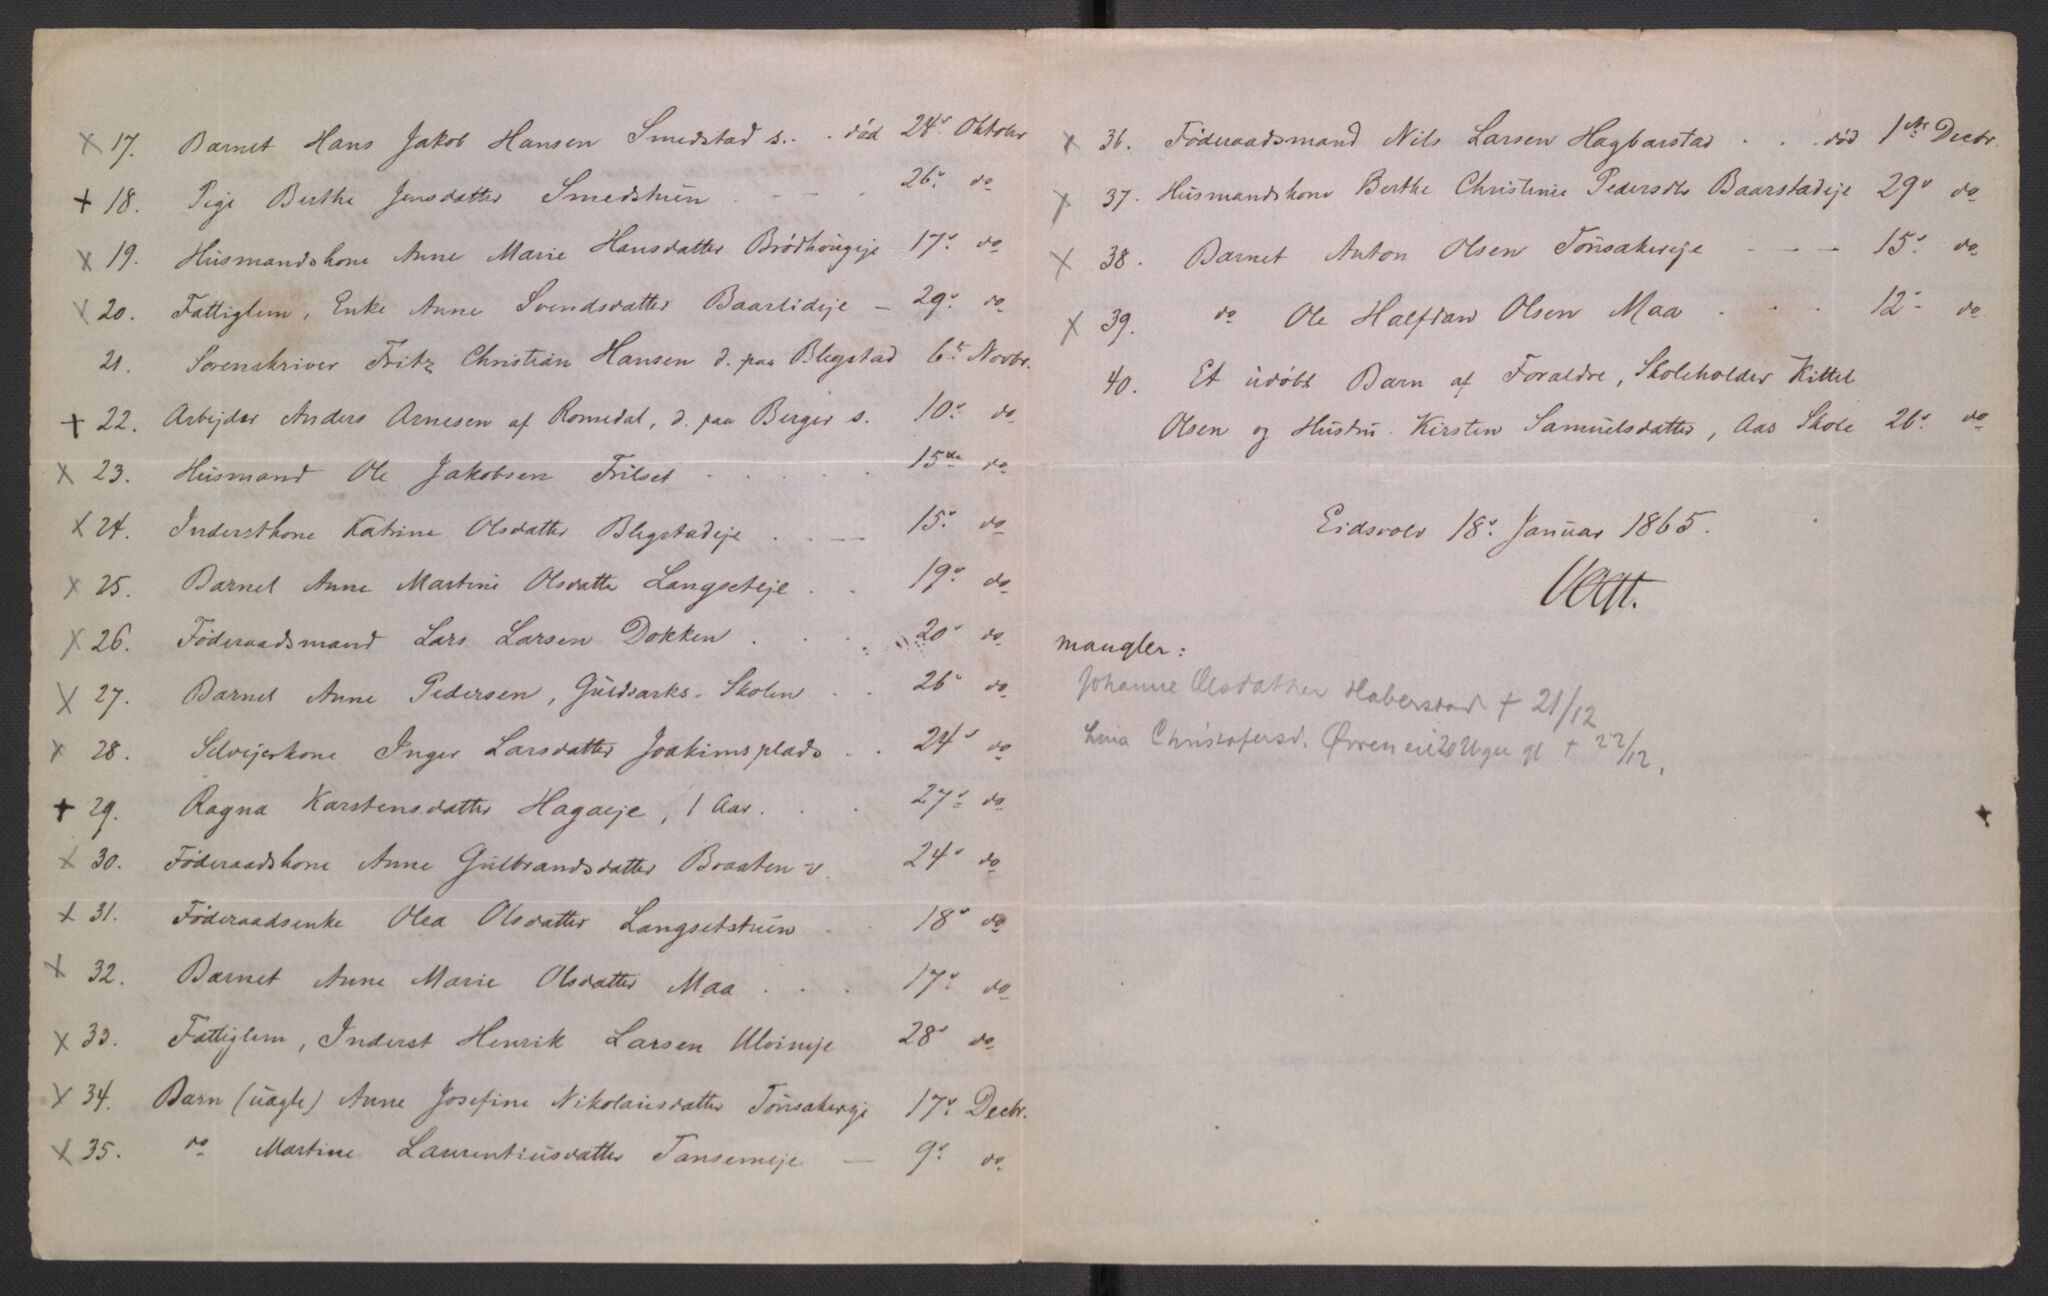 17. Barnet Hans Jakob Hansen Smedstad s. . død 24de Oktober
18. Pige Berthe Jensdatter Smedstuen 26de do
19. Husmandskone Anne Marie Hansdatter Brødhougeje 17de do
20. Fattiglem, Enke Anne Svendsdatter Baarlideje — 29de do
21. Sorenskriver Fritz Christian Hansen d. paa Blegstad 6te Novbr.
22. Arbejder Anders Arnesen af Romedal, d. paa Berger s. 10de do
23. Husmand Ole Jakobsen Frilset 15de do
24. Inderstkone Katrine Olsdatter Blegstadeje 15de do
25. Barnet Anne Martine Olsdatter Langseteje 19de do
26. Føderaadsmand Lars Larsen Dokken 20de do
27. Barnet Anne Pedersen, Guldvarks-Skolen 26de do
28. Selvejerkone Inger Larsdatter Joakimsplads 24de do
29. Ragna Karstensdatter Hagaeje, 1 Aar. 27de do
30. Føderaadskone Anne Gulbrandsdatter Braaten v. 24de do
31. Føderaadsenke Olea Olsdatter Langsetstuen 18de do
32. Barnet Anne Marie Olsdatter Maa 17de do
33. Fattiglem, Inderst Henrik Larsen Ulvineje 28de do
34. Barn (uægte) Anne Josefine Nikolaisdatter Tønsakereje 17de Decbr.
35. do Martine Laurentiusdatter Tansemeje — 9de do
36. Føderaadsmand Nils Larsen Hagbarstad . . død 1ste Decbr.
37. Husmandskone Berthe Christine Pedersdtr Baarstadeje 29de do
38. Barnet Anton Olsen Tønsakereje — — — 15de do
39. do Ole Halfdan Olsen Maa 12te do
40. Et udøbt Barn af Foraldre, Skoleholder Kittel
Olsen og Hustru Kirsten Samuelsdatter, Aas Skole 26de do
Eidsvold 18de Januar 1865.
mangler:
Johanne Olsdatter Haberstad + 21/12
Lina Christofersd. Ørren 20 Uger gl + 22/12.